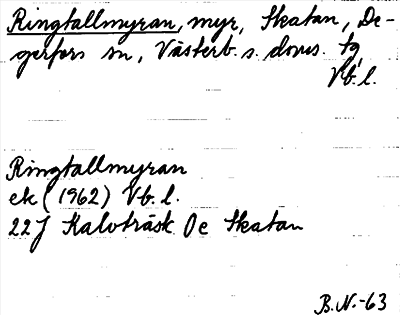 Ringtallmyran, myr, Skatan, De-
gerfors sn, Västerb. s. doms. tg,
Vb. l.
Ringtallmyran
ek (1962) Vb. l.
22J Kalvträsk Oe Skatan
B.N.-63